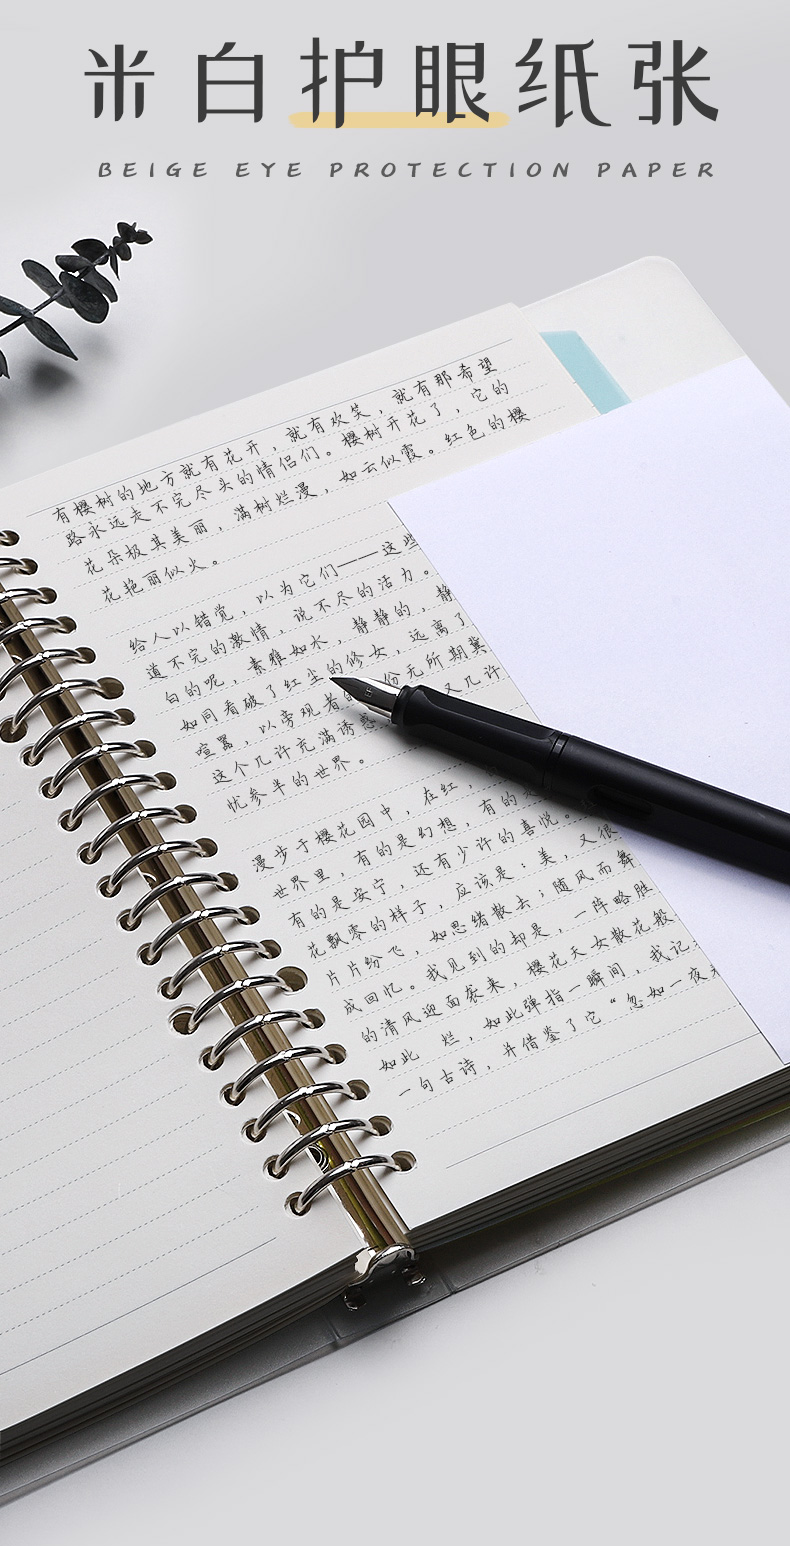 米白护眼纸张
BEIGE EYE PROTECTION PAPER
有樱树的地方就有花开，就有欢笑，就有那希望
路永远走不完尽头的情侣们。樱树开花了，它的
花朵极其美丽，满树烂漫，如云似霞。红色的樱
花艳丽似火。
给人以错觉，以为它们——这些
道不完的激情，说不尽的活力。
白的呢，素雅如水，静静的，静
如同看破了红尘的修女，远离了
喧嚣，以旁观者的 份无所期冀
这个几许充满诱惑 又几许
忧参半的世界。
漫步于樱花园中，在红，
世界里，有的是幻想，有的是
有的是安宁，还有少许的喜悦。
花飘零的样子，应该是：美，又很
片片纷飞，如思绪散去；随风而舞
成回忆。我见到的却是，一阵略胜
的清风迎面袭来，樱花天女散花般
如此 烂，如此弹指一瞬间，我记
一句古诗，并借鉴了它“忽如一夜
EF